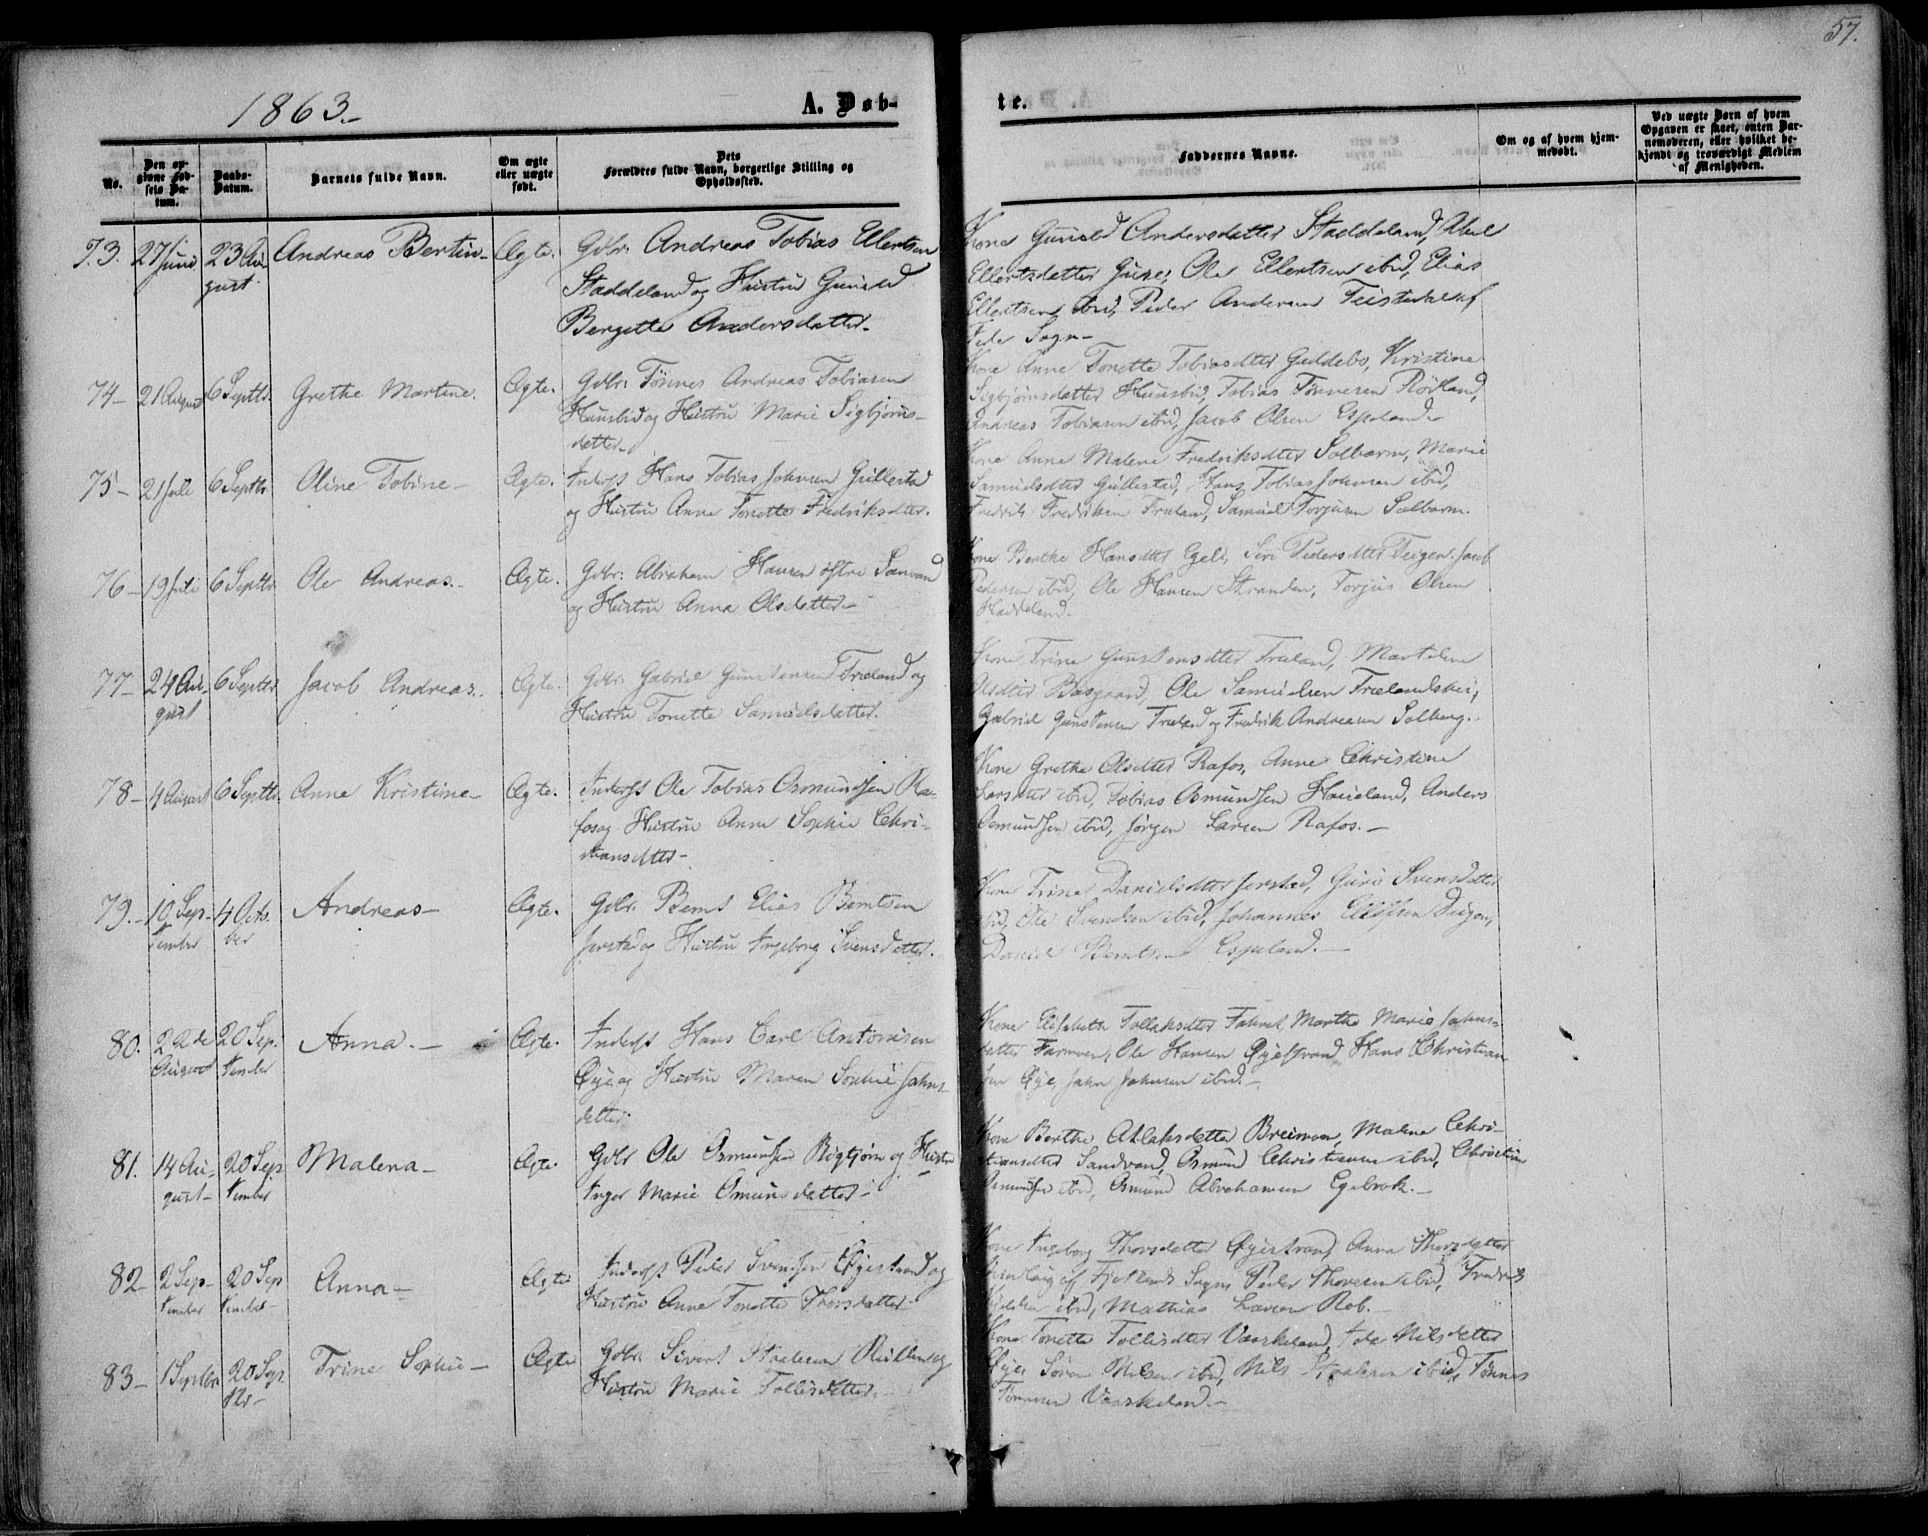 57.
1863.-
A. Døb-
te.
No.
Den op-
givne Fød-
sels Da-
tum.
Daabs-
Datum.
Barnets fulde Navn.
Om ægte
eller uægte
født.
Dets
Forældres fulde Navn, borgerlige Stilling og
Opholdssted.
Faddernes Navne.
Om og af hvem hjem-
medøbt.
Ved uægte Børn af hvem
Opgaven er skeet, enten Bar-
nemoderen, eller hvilket be-
kjendt og troværdigt Medlem
af Menigheden.
73. 27 Juni 23 Au-
gust.
Andreas Bertin-
Ægte.
Gdbr. Andreas Tobias Ellertsen
Staddeland og Hustru Gunild
Bergette Andersdatter-
Kone Gunild Andersdatter Staddeland,
Ellertsdatter Ole Ellertsen ibid, Elias
Ellertsen ibid, Peder Andersen af
Fede Sogn-
74- 21 August 6 Septbr.
Grethe Martine.
Ægte.
Gdbr. Tønnes Andreas Tobiasen
Hunsbid og Hustru Marie Sigbjørns-
datter-
Kone Anne Tonette Tobiasdtter Geddebo, Kristine
Sigbjørnsdatter Hunsbid, Tobias Tønnesen Rørland,
Andreas Tobiasen ibid, Jacob Olsen Espeland-
75- 21 Juli 6 Septbr.
Oline Tobine-
Ægte.
Inderst Hans Tobias Johnsen Gullestad
og Hustru Anne Tonette Fredriksdtter.
Kone Anne Malene Fredriksdtter Solbarm, Marie
Samuelsdtter Gullestad, Hans Tobias Johnsen ibid,
Fredrik Fredriksen Træland, Samuel Torjusen Solbarm.
76- 19 Juli 6 Septbr.
Ole Andreas.-
Ægte.
Gdbr. Abraham Hansen østre Sanvand
og Hustru Anna Olsdatter-
Kone Berthe Hansdtter Egeli, Siri Pedersdtter Teigen, Jacob
Pedersen ibid, Ole Hansen Stranden, Torjus Olsen
Haddeland.
77- 24 Au-
gust
6 Septbr.
Jacob Andreas.
Ægte.
Gdbr. Gabriel Gunstensen Træland og
Hustru Tonette Samuelsdatter.
Kone Trine Gunstensdtter Træland,
Olsdtter Ole Samuelsen Trælandshei,
Gabriel Gunstensen Træland og Fredrik Andreasen Solberg.
78- 4 August 6 Septbr.
Anne Kristine-
Ægte.
Inderst Ole Tobias Osmundsen Ra-
fos og Hustru Anne Sophie Chri-
stiansdtter-
Kone Grethe Olsdtter Rafos, Anne Christine
Larsdtter ibid, Tobias Osmundsen Haueland, Anders
Osmundsen ibid, Jørgen Larsen Rafos.-
79.- 10 Sep-
tember
4 Octo-
ber
Andreas-
Ægte.
Gdbr. Bernt Elias Berntsen
Jerstad og Hustru Ingeborg Svensdatter.
Kone Trine Danielsdtter Jerstad, Guri Svensdatter
ibid, Ole Svendsen ibid, Johannes Teigen,
Daniel Berntsen Espeland.-
80. 22de
August
20 Sep-
tember
Anna.-
Ægte.
Inderst Hans Carl Antonisen
Øye og Hustru Maren Sophie Jahns-
datter
Kone Elisabeth Tollaksdtter Marthe Marie Jahns-
datter Ole Hansen Øyestrand, Hans Christian-
sen Øye, Jahn Johnsen ibid.-
81. 14 Au-
gust-
20 Sep-
tember
Malena-
Ægte.
Gdbr Ole Osmundsen Rigtjørn og Hustru
Inger Marie Omunsdatter-
Kone Berthe Atlaksdatter Breimoen, Malene Chri-
stiansdtter Sandvand, Osmund Christiansen ibid, Christian
Osmundsen ibid, Osmund Abrahamsen Egebrok.-
82- 2 Sep-
tember
20 Sep
tember-
Anna-
Ægte
Inderst Peder Svendsen Øyestrand og
Hustru Anne Tonette Thorsdatter
Kone Ingeborg Thorsdatter Øyestrand, Anna Thorsdatter
af Fjotlands Sogn, Peder Thoresen ibid, Fredrik
ibid, Mathias Larsen Rob.-
83- 1 Septbr 20 Sep
tbr-
Trine Sophie-
Ægte
Gdbr. Sivert Staalesen Rullen og
Hustru Marie Tollisdatter.
Kone Tonette Tollisdtter Vaaskeland, Nilsdatter
Øye, Søren Nilsen ibid, Nils Staalesen ibid, Tønnes
Tønnesen Vaaskeland.-